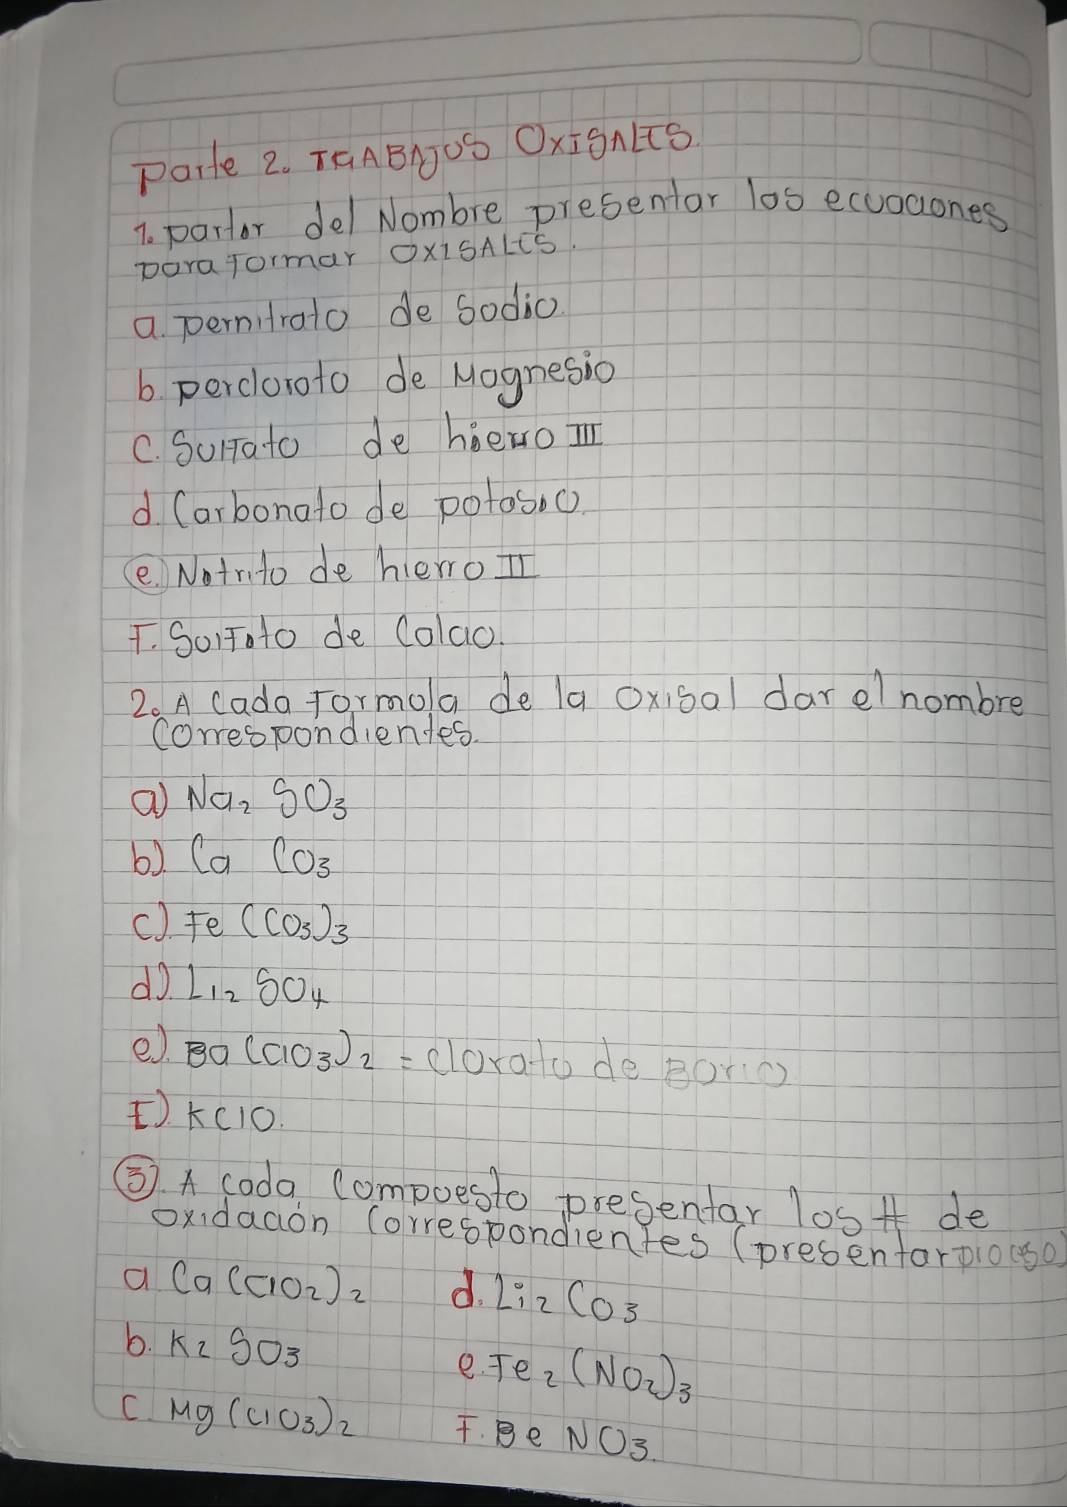 Parte 2. TRABAJOS OXISALES
1. partir del Nombre presentar las ecuaciones
para formar OXISALES.
a. pernitrato de Sodio
b. perclorato de Magnesio
c. Sulfato de hierro III
d. Carbonato de potasio.
e. Nitrito de hierro II
F. Sulfato de Calcio.
2. A cada formula de la oxisal dar el nombre
Correspondientes.
a) Na₂ SO₃
b). Ca CO₃
c). Fe (CO₃)₃
d). Li₂ SO₄
e). Ba (ClO₃)₂ = Clorato de Bario
F). KClO.
3). A cada Compuesto presentar los # de
oxidación Correspondientes (presentar proceso)
a Ca (ClO₂)₂ d. Li₂ CO₃
b. K₂ SO₃ e. Fe₂ (NO₂)₃
c. Mg (ClO₃)₂ F. Be NO₃.